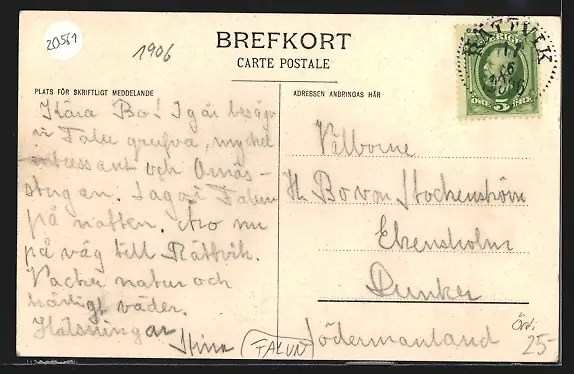 20561
1906
BREFKORT
CARTE POSTALE
RÄTTVIK
SVERIGE
5
ÖRE
PLATS FÖR SKRIFTLIGT MEDDELANDE
Kära Bo! I går besågo
vi Falu grufva, mycket
intressant och Ornäs-
stugan. Lågo i Falun
på natten. Äro nu
på väg till Rättvik.
Vacker natur och
härligt väder.
Hälsningar
FALUN
ADRESSEN ANBRINGAS HÄR
Välborne
H. Bo von Stockenström
Ekensholm
Dunker
Södermanland
25-